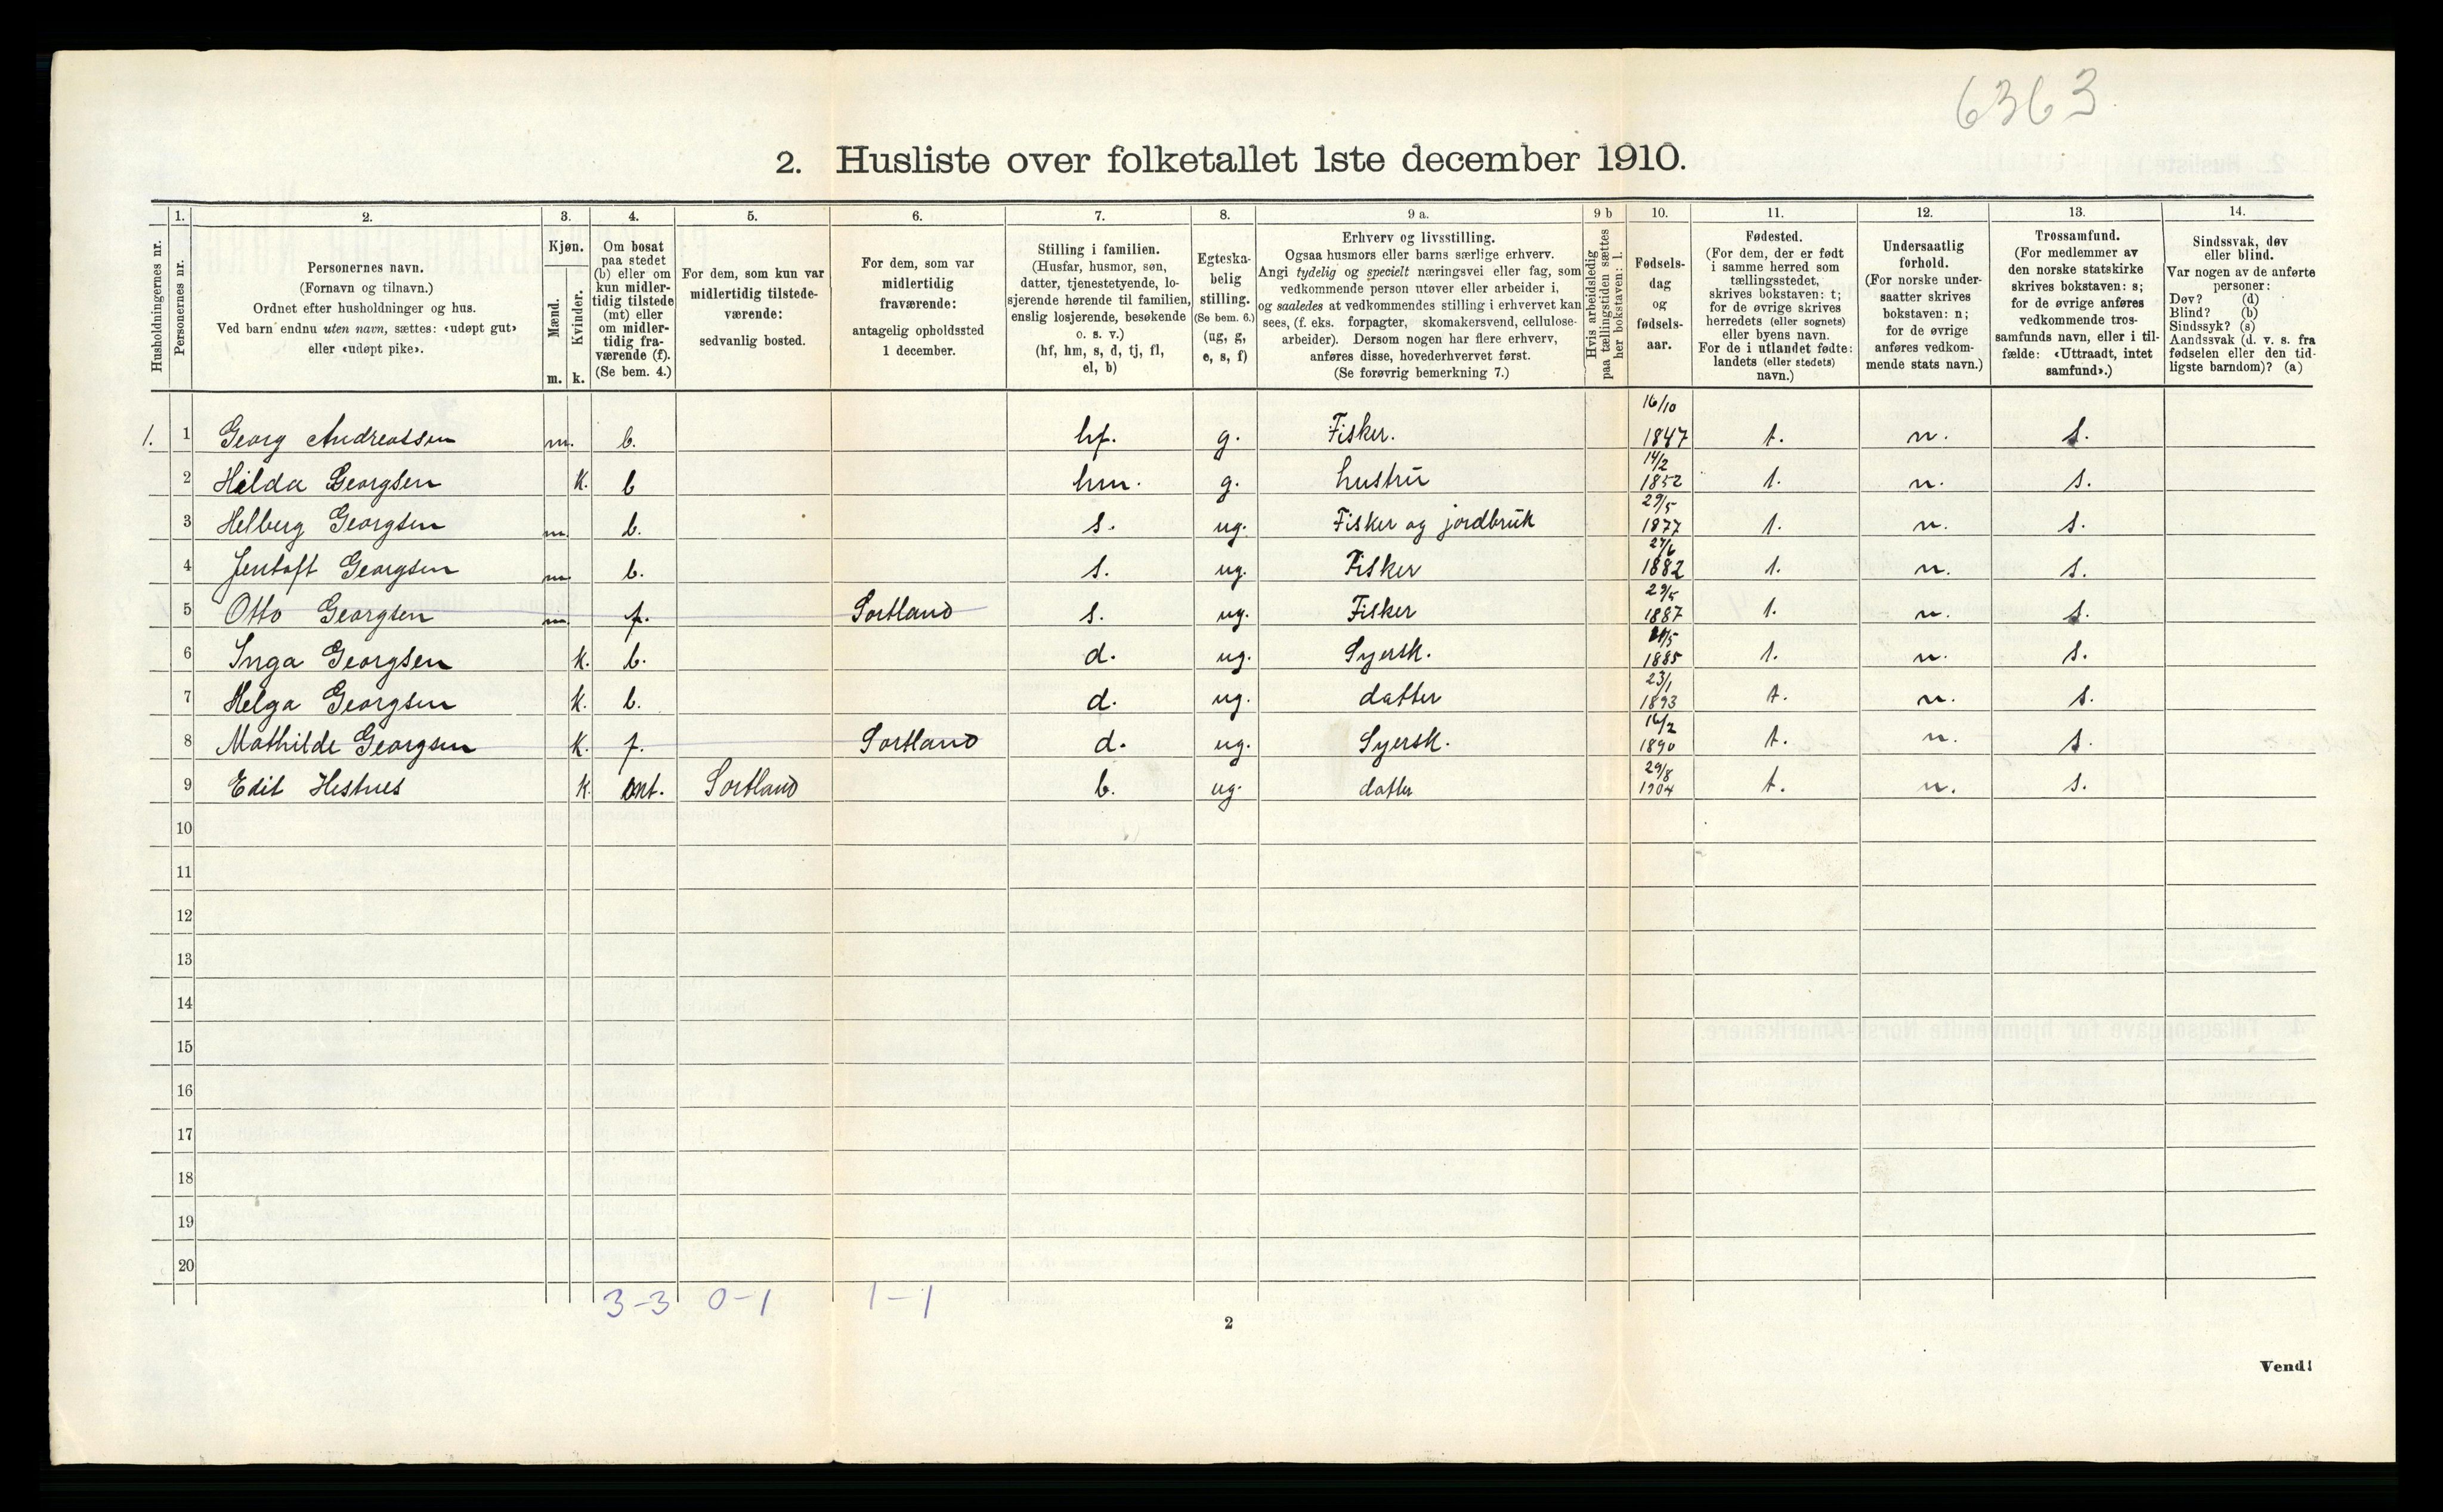 6363
2. Husliste over folketallet 1ste december 1910.
Husholdningernes nr.
1.
Personernes nr.
2.
Personernes navn.
(Fornavn og tilnavn.)
Ordnet efter husholdninger og hus.
Ved barn endnu uten navn, sættes: «udøpt gut»
eller «udøpt pike».
3.
Kjøn.
Mænd.
m.
Kvinder.
k.
4.
Om bosat
paa stedet
(b) eller om
kun midler-
tidig tilstede
(mt) eller
om midler-
tidig fra-
værende (f).
(Se bem. 4.)
5.
For dem, som kun var
midlertidig tilstede-
værende:
sedvanlig bosted.
6.
For dem, som var
midlertidig
fraværende:
antagelig opholdssted
1 december.
7.
Stilling i familien.
(Husfar, husmor, søn,
datter, tjenestetyende, lo-
sjerende hørende til familien,
enslig losjerende, besøkende
o. s. v.)
(hf, hm, s, d, tj, fl,
el, b)
8.
Egteska-
belig
stilling.
(Se bem. 6.)
(ug, g,
e, s, f)
9 a.
Erhverv og livsstilling.
Ogsaa husmors eller barns særlige erhverv.
Angi tydelig og specielt næringsvei eller fag, som
vedkommende person utøver eller arbeider i,
og saaledes at vedkommendes stilling i erhvervet kan
sees, (f. eks. forpagter, skomakersvend, cellulose-
arbeider). Dersom nogen har flere erhverv,
anføres disse, hovederhvervet først.
(Se forøvrig bemerkning 7.)
9 b
Hvis arbeidsledig
paa tællingstiden sættes
her bokstaven: l.
10.
Fødsels-
dag
og
fødsels-
aar.
11.
Fødested.
(For dem, der er født
i samme herred som
tællingsstedet,
skrives bokstaven: t;
for de øvrige skrives
herredets (eller sognets)
eller byens navn.
For de i utlandet fødte:
landets (eller stedets)
navn.)
12.
Undersaatlig
forhold.
(For norske under-
saatter skrives
bokstaven: n;
for de øvrige
anføres vedkom-
mende stats navn.)
13.
Trossamfund.
(For medlemmer av
den norske statskirke
skrives bokstaven: s;
for de øvrige anføres
vedkommende tros-
samfunds navn, eller i til-
fælde: «Uttraadt, intet
samfund».)
14.
Sindssvak, døv
eller blind.
Var nogen av de anførte
personer:
Døv? (d)
Blind? (b)
Sindssyk? (s)
Aandssvak (d. v. s. fra
fødselen eller den tid-
ligste barndom)? (a)
1. 1 Georg Andreassen m. b. hf. g. Fisker. 16/10 1847 t. n. s.
2 Hilda Georgsen k. b hm. g. hustru 14/2 1852 t. n. s.
3 Helberg Georgsen m. b. s. ug. Fisker og jordbruk 29/5 1877 t. n. s.
4 Jentoft Georgsen m. b. s. ug. Fisker 27/6 1882 t. n. s.
5 Otto Georgsen m. f. Sortland s. ug. Fisker 29/5 1887 t. n. s.
6 Inga Georgsen k. b. d. ug. Syersk. 1885 t. n. s.
7 Helga Georgsen k. b. d. ug. datter 23/1 1893 t. n. s.
8 Mathilde Georgsen k. f. Sortland d. ug. Syersk. 16/2 1890 t. n. s.
9 Edit Hestnes k. mt. Sortland b. ug. datter 29/8 1904 t. n. s.
10
11
12
13
14
15
16
17
18
19
20
3-3 0-1 1-1
2
Vend!